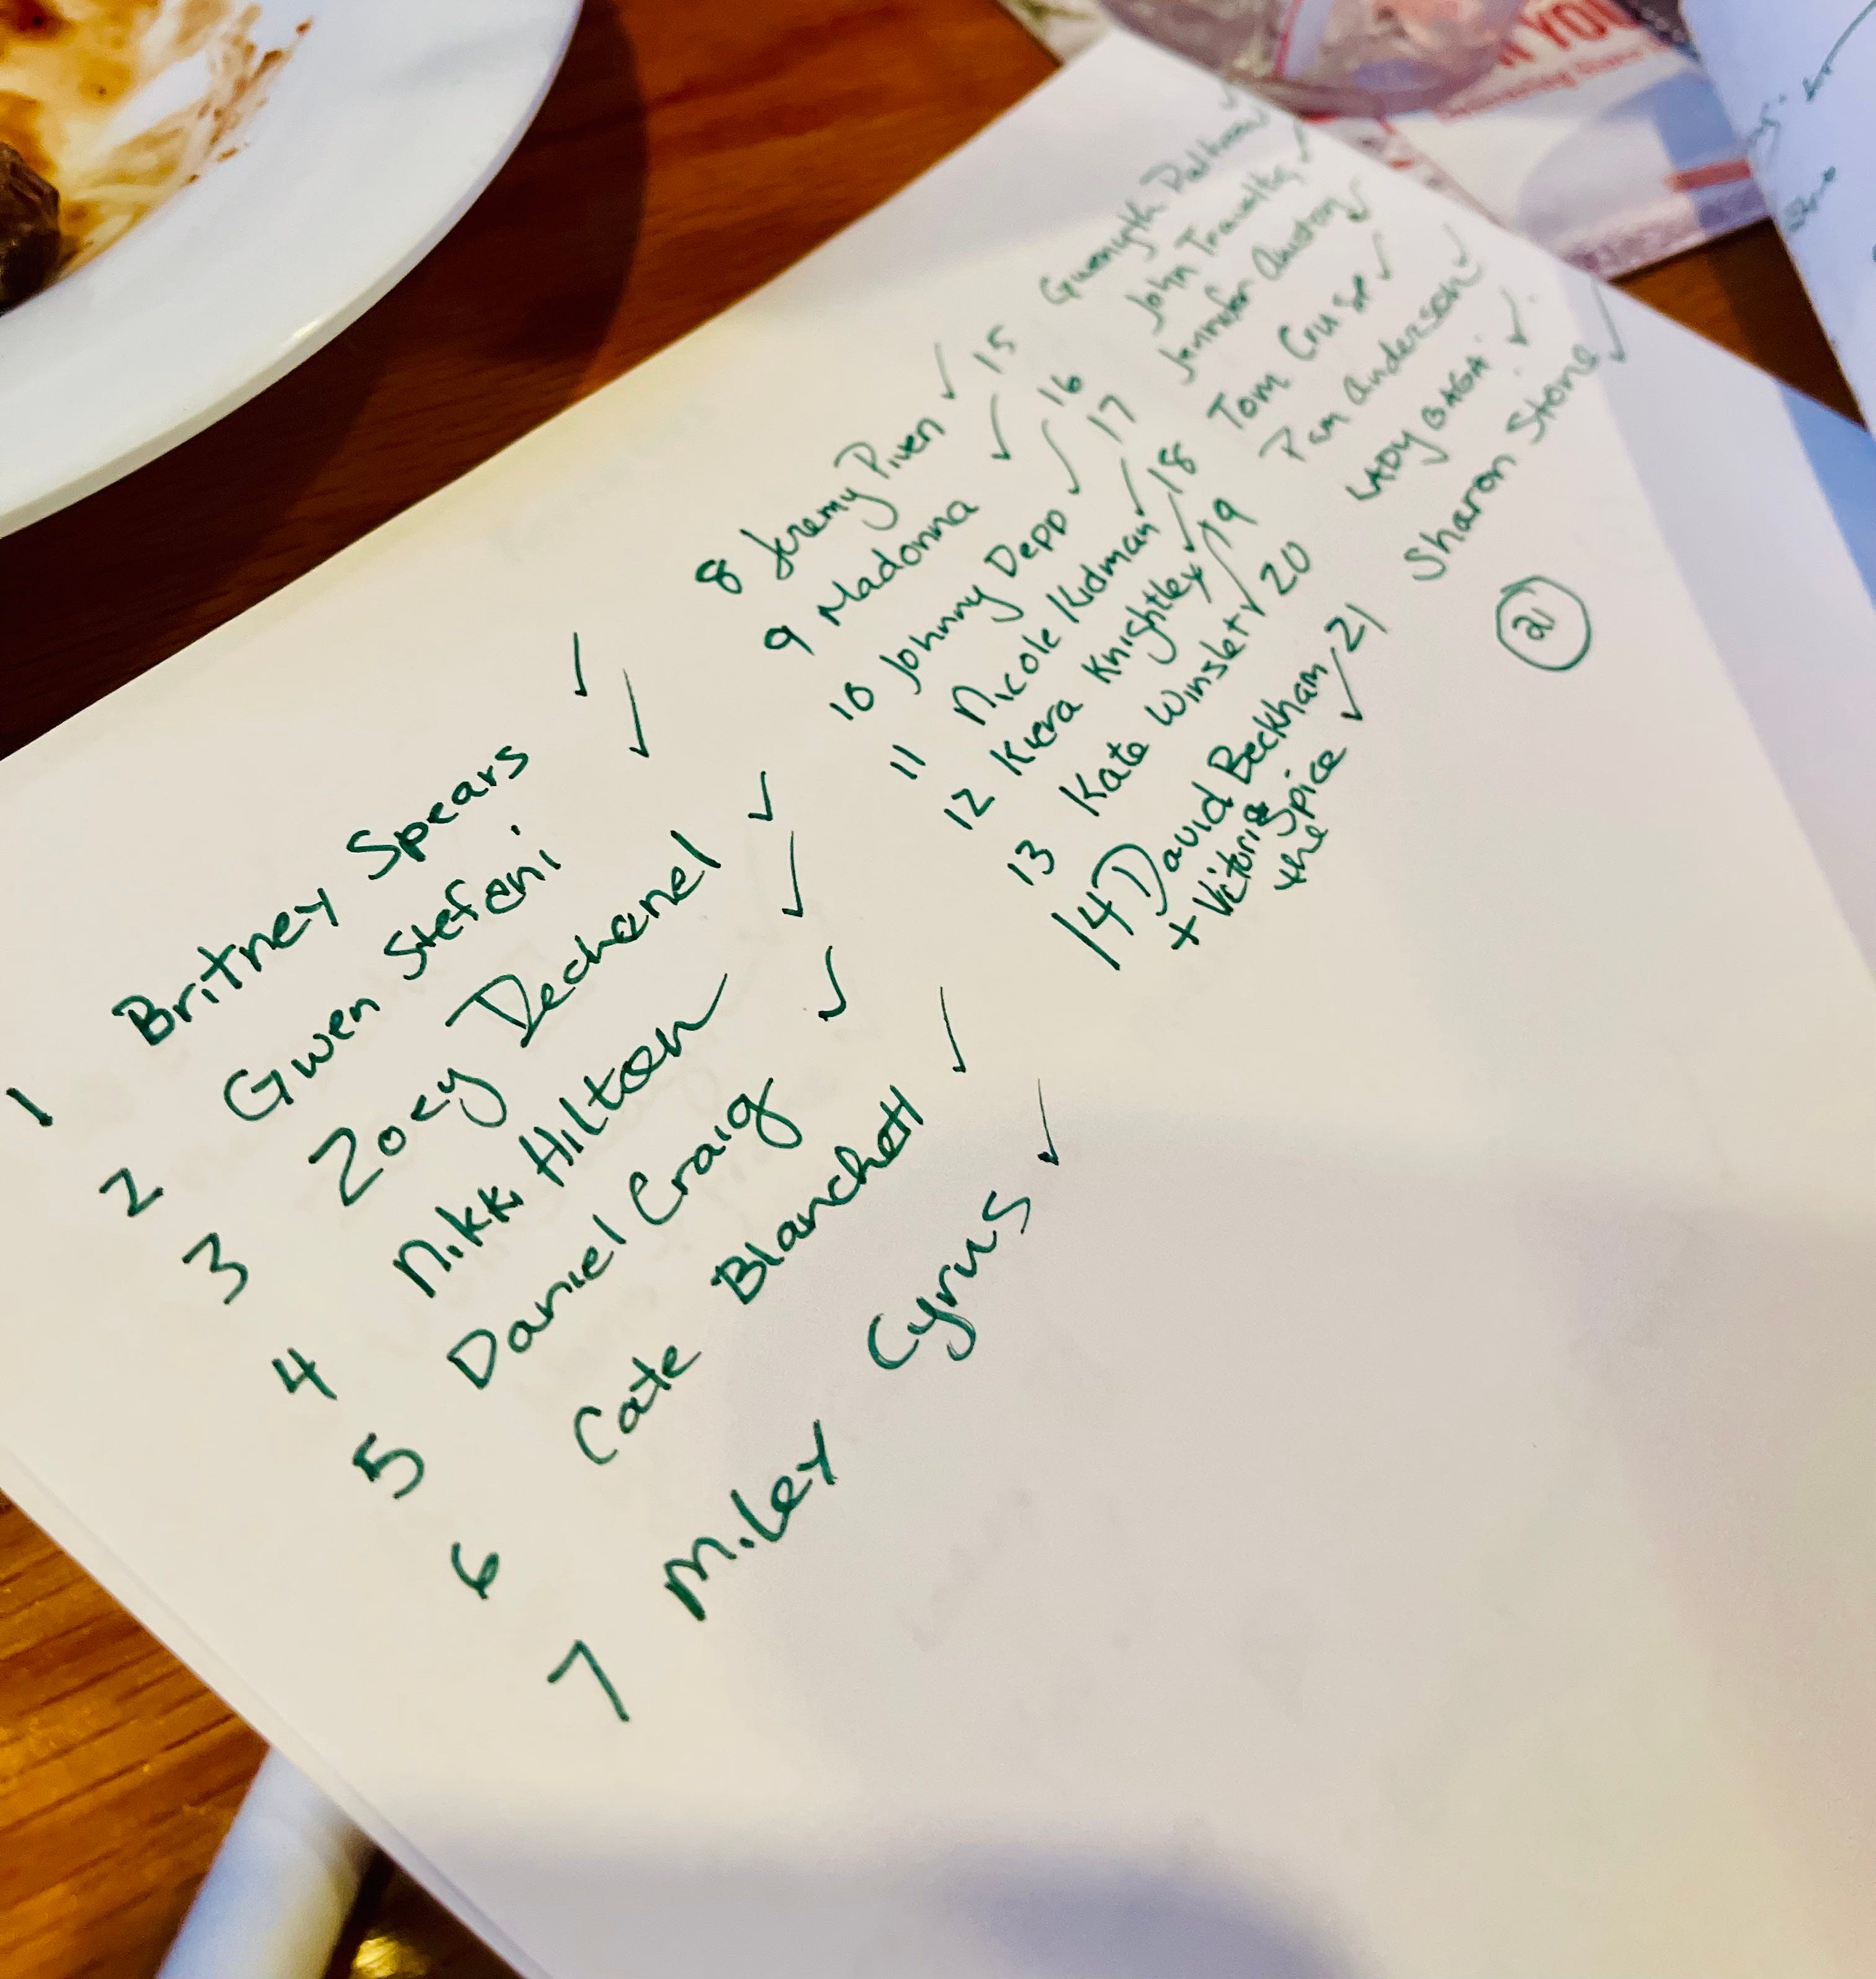 1 Britney Spears ✓
2 Gwen Stefani ✓
3 Zoey Dechanel ✓
4 Nikki Hilton ✓
5 Daniel Craig ✓
6 Cate Blanchett ✓
7 Miley Cyrus ✓
8 Jeremy Piven ✓
9 Madonna ✓
10 Johnny Depp ✓
11 Nicole Kidman ✓
12 Kiera Knightley ✓
13 Kate Winslet ✓
14 David Beckham
+ Victoria
the Spice ✓
15 Gwenyth Paltrow ✓
16 John Travolta ✓
17 Jennifer Aniston ✓
18 Tom Cruse ✓
19 Pam Anderson ✓
20 LADY GAGA ✓
21 Sharon Stone ✓
21
YOU